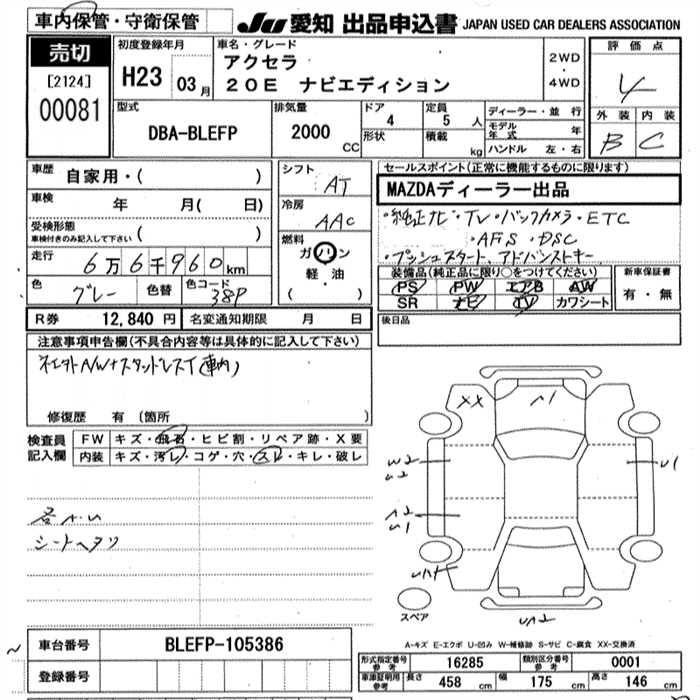 車内保管・守衛保管 JU 愛知 出品申込書 JAPAN USED CAR DEALERS ASSOCIATION
売切
[2124]
00081
初度登録年月
H23 03月
車名・グレード
アクセラ
20E ナビエディション
2WD
・
4WD
評価点
4
外装 内装
B C
型式
DBA-BLEFP
排気量
2000 CC
ドア
4
形状
定員
5 人
積載
kg
ディーラー・並行
モデル年式 年
ハンドル 左・右
車歴 自家用・( )
車検 年 月(日)
受検形態
車検付きのみ記入して下さい ( )
走行 6万6千960km
色 グレー 色替 色コード 38P
シフト
AT
冷房
AAC
燃料
ガソリン
軽・油
( ・ )
セールスポイント(正常に機能するものに限ります)
MAZDAディーラー出品
・純正ナビ・TV・バックカメラ・ETC
・AFS・DSC
・プッシュスタート、アドバンストキー
装備品(純正品に限り○をつけてください)
PS PW エアB AW
SR ナビ TV カワシート
新車保証書
有・無
R券 12,840円 名変通知期限 月 日
後日品
注意事項申告欄(不具合内容等は具体的に記入して下さい)
修復歴 有(箇所 )
検査員記入欄
FW キズ・飛石・ヒビ割・リペア跡・X要
内装 キズ・汚レ・コゲ・穴・スレ・キレ・破レ
シートヘタリ
XX
A1
W2
U2
A2
U1
U1
スペア
A-キズ E-エクボ U-凹み W-補修跡 S-サビ C-腐食 XX-交換済
車台番号 BLEFP-105386
登録番号
形式指定番号参考 16285 類別区分番号参考 0001
車庫証明用参考 長さ 458cm 幅 175cm 高さ 146cm